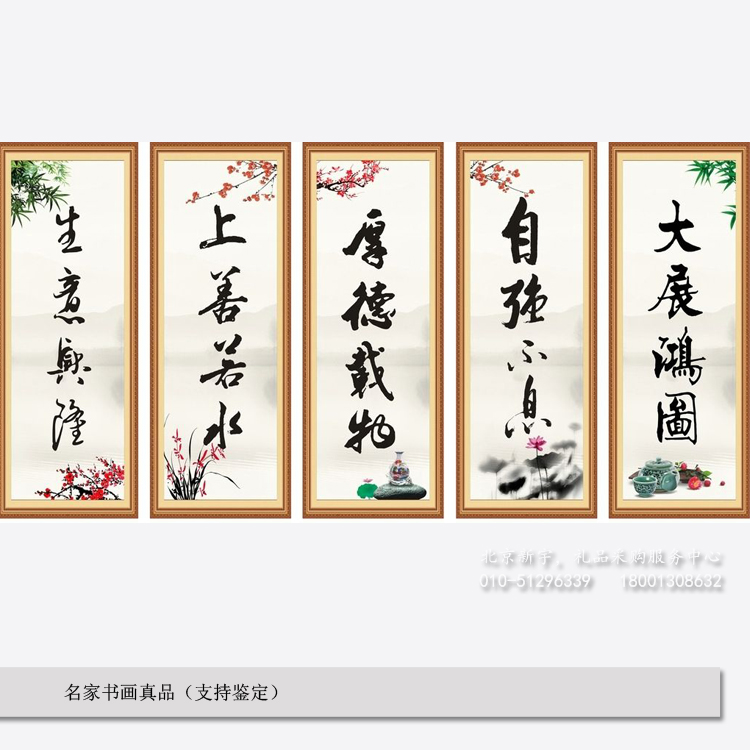 生意興隆
上善若水
厚德載物
自强不息
大展鴻圖
北京新宇，礼品采购服务中心
010-51296339 18001308632
名家书画真品（支持鉴定）